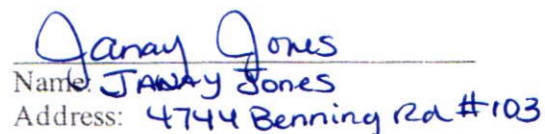 Janay Jones
Name: JANAY Jones
Address: 4744 Benning Rd #103